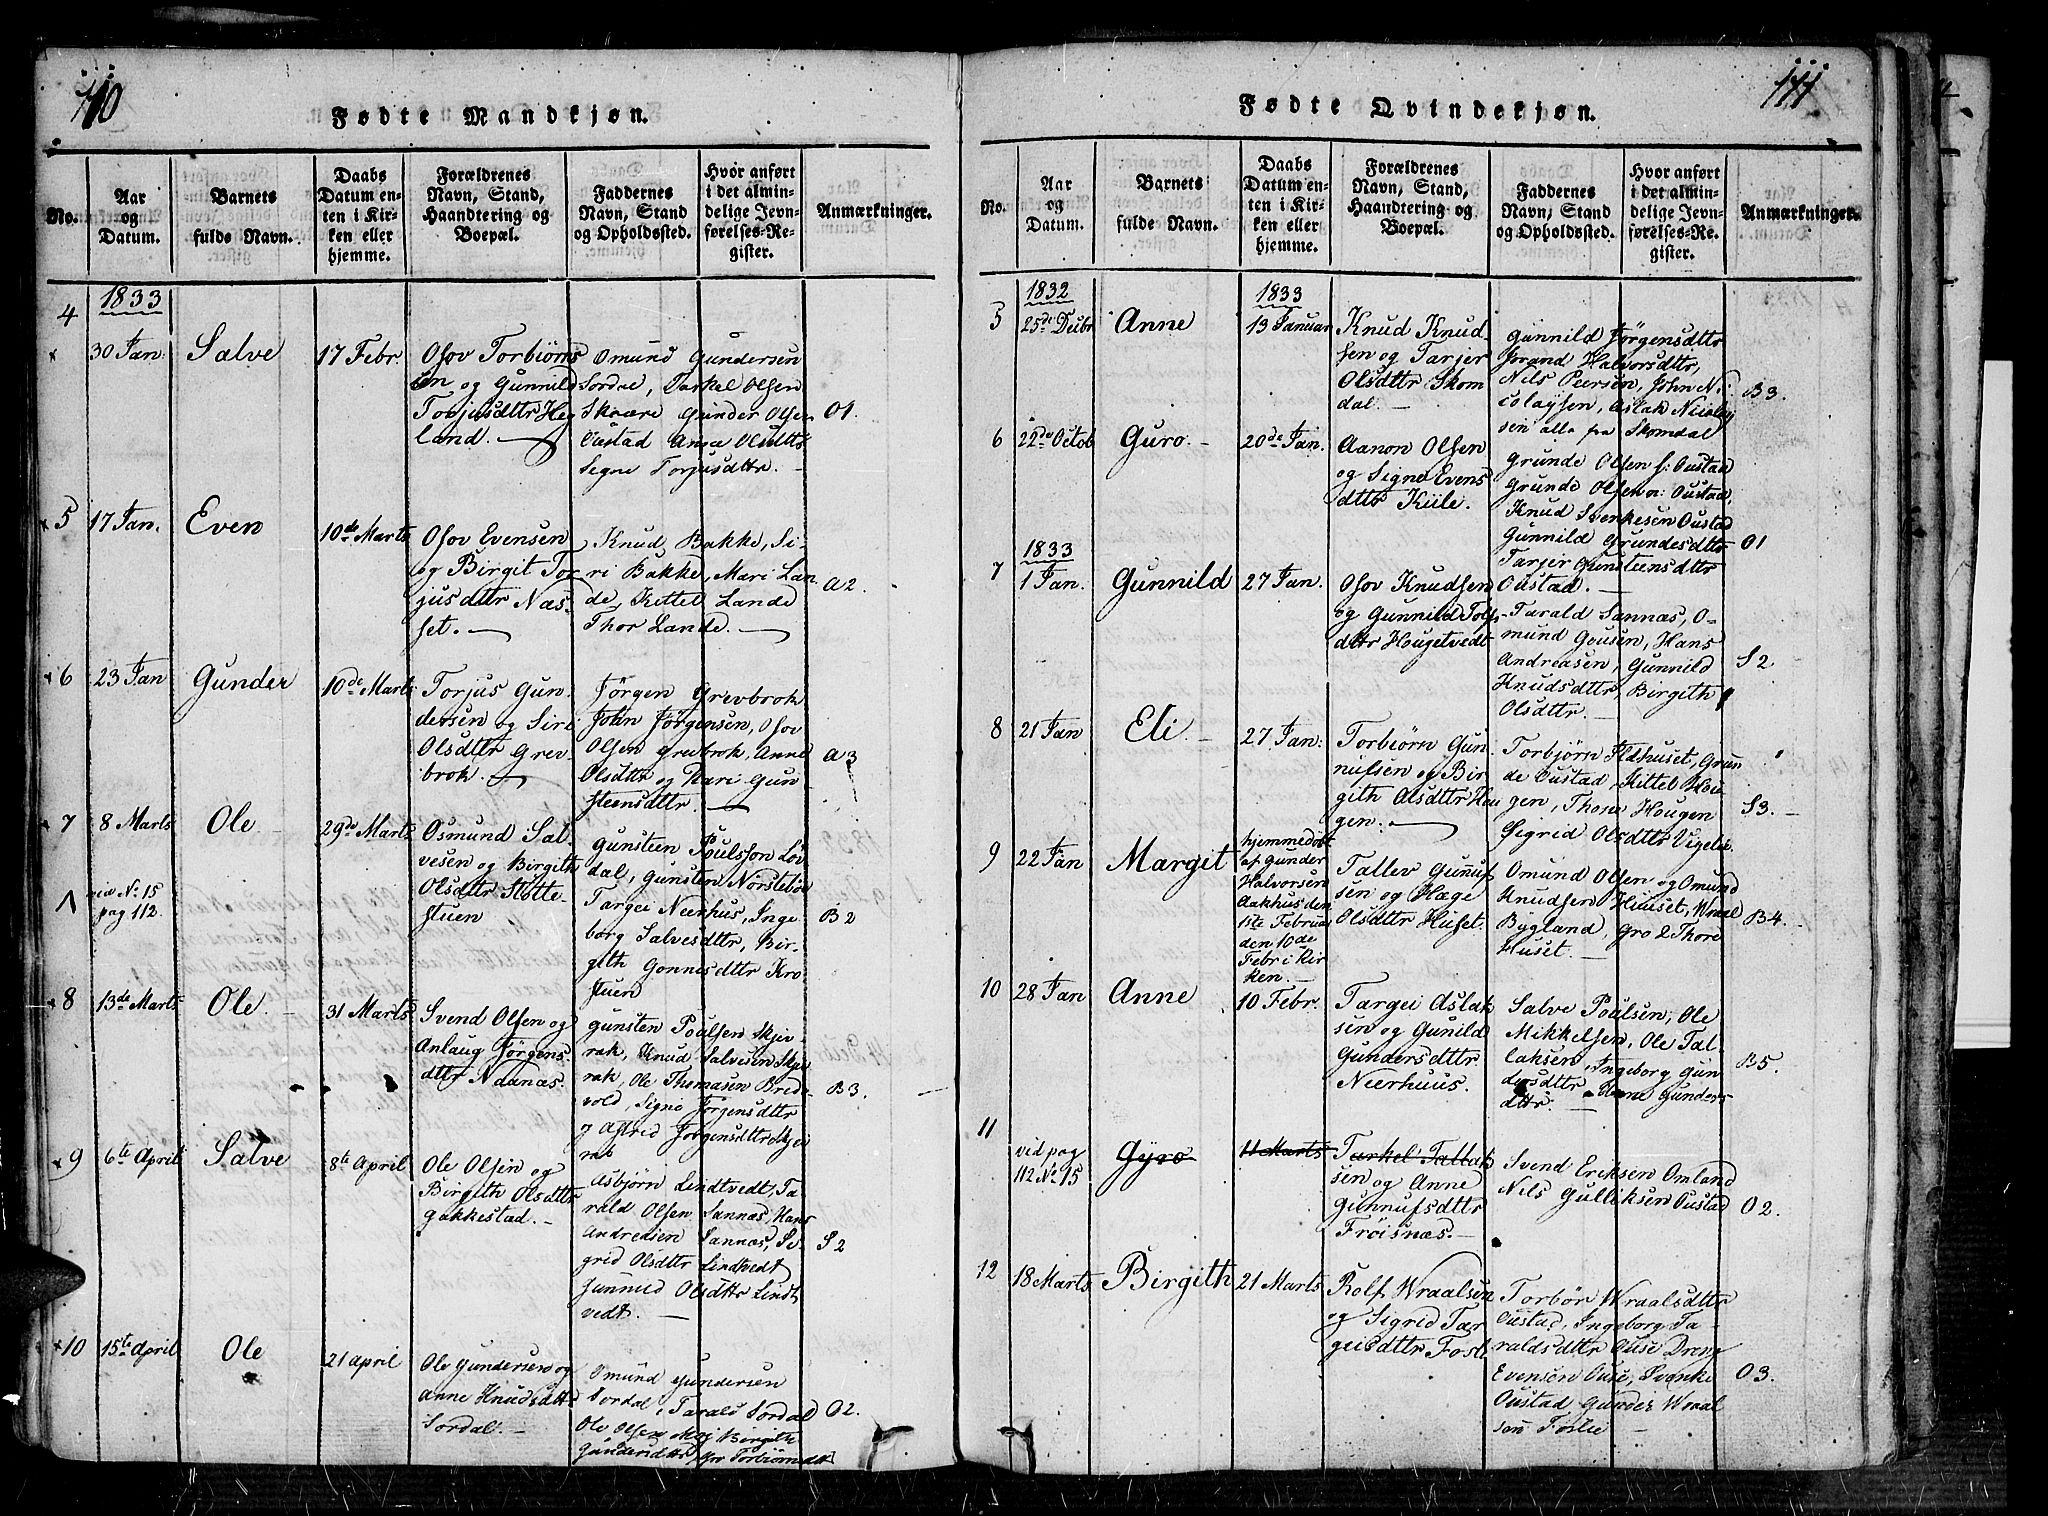 110
Fødte Mandkjøn.
No.
Aar
og
Datum.
Barnets
fulde Navn.
Daabs
Datum en-
ten i Kir-
ken eller
hjemme.
Forældrenes
Navn, Stand,
Haandtering og
Boepæl.
Faddernes
Navn, Stand
og Opholdssted.
Hvor anført
i det almin-
delige Jevn-
førelses-Re-
gister.
Anmærkninger.
1833
4
30 Jan:
Salve
17 Febr.
Osov Torbiørns
søn og Gunnild
Torjusdttr Heg
land.
Omund Gundersen
Sordae, Tarkel Olsen
Skaare Gunder Olsen
Oustad Ansa Olsdttr
Signe Torjusdttr.
O1.
5
17 Jan.
Even
10de Marts
Osov Evensen
og Birgit Tor
jusdttr Næs-
set.
Knud Bakke, Si-
ri Bakke, Mari Lan
de, Kettel Lande
Thor Lande.
A2.
6
23 Jan
Gunder
10de Marts
Torjus Gun-
dersen og Siri
Olsdttr Grev-
brok.
Jørgen Grevbrok
John Jørgensen, Osov
Olsen Grevbrok, Anne
Olsdttr og Kari Gun
steensdttr.
A3
7
8 Marts
Ole
29de Marts
Osmund Sal-
vesen og Birgith
Olsdttr Slotte-
stuen
Gunsteen Poulsson Løv
dal, Gunsten Nørstebøe
Targei Neerhus, Inge
borg Salvesdttr, Bir-
gith Gonnesdttr Kro
stuen
B2
vid No 15
pag 112.
8
13de Marts
Ole
31 Marts
Svend Olsen og
Anlaug Jørgens
dttr Ndanæs.
Gunsten Poulsen Skjev
rak, Knud Salvesen Skje
rak, Ole Thomasen Brede
vold, Signe Jørgensdttr
og Astrid Jørgensdttr
B3.
9
6te April
Salve
8te April
Ole Olsen og
Birgith Olsdttr
Gakkestad.
Asbjørn Lindtvedt, Ta
rald Olsen Sannæs, Hans
Andresen Sannæs, Si-
grid Olsdttr Lindtvedt
Gunnild Olsdttr Lindt
vedt.
S2
10
15te April
Ole
21 April
Ole Gundersen og
Anne Knudsdttr
Sordal.
Omund Gundersen
Sordal, Tarald Sordal
Ole Olsen Moi Bergithe
Gundersdttr, Gro Torbiørnsdtt
O2.
111
Fødte Qvindekjøn.
No.
Aar
og
Datum.
Barnets
fulde Navn.
Daabs
Datum en-
ten i Kir-
ken eller
hjemme.
Forældrenes
Navn, Stand,
Haandtering og
Boepæl.
Faddernes
Navn, Stand
og Opholdssted.
Hvor anført
i det almin-
delige Jevn-
førelses-Re-
gister.
Anmærkninger.
1832
1833
5
25de Decbr
Anne
13 Januar
Knud Knud-
sen og Tarjer
Olsdttr Skom
dal.
Gunnild Jørgensdttr
Jorand Halvorsdttr,
Nils Peersen, John Ni
colaysen, Aslak Nicolay
sen alle fra Skomdal
B3.
6
22de Octob
Guro.
20de Jan.
Aanon Olsen
og Signe Evens
dttr Kiile.
Grunde Olsen s: Oustad
Grunde Olsen n: Oustad,
Knud Svenkesen Oustad
Gunnild Grundesdttr
Tarjer Gunsteensdttr
Oustad.
O1
1833
7
1 Jan.
Gunnild
27 Jan.
Osov Knudsen
og Gunnild Tolfs-
dttr Hougetvedt
Tarald Sannæs, O-
mund Gousen, Hans
Andreasen, Gunnild
Knudsdttr, Birgith
Olsdttr.
S2
8
21 Jan
Eli
27 Jan:
Torbiørn Gun-
nufsen og Bir-
gith Olsdttr Hou
gen:
Torbjørn Ildhuset, Grun
de Oustad, Kittel Hou
gen, Thore Hougen
Sigrid Olsdttr Vigeland.
S3.
9
22 Jan
Margit
hjemmedøbt
af Gunder
Halvorsen
Aakhus den
1ste Februar
den 10de
Febr i Kir
ken.
Tallev Gunuf
sen og Hæge
Olsdttr Huset.
Omund Olsen og Omund
Knudsen Huuset, Wraal
Bygland, Gro & Thore
Huset.
B4.
10
28 Jan
Anne
10 Febr.
Targei Aslak
sen og Gunild
Gundersdttr
Neerhuus.
Salve Poulsen, Ole
Mikkelsen, Ole Tal-
laksen, Ingeborg Gun
dersdttr Anne Gunders
dttr.
B5.
11
vid pag
112 No 15
Gyro
11 Marts
Tarkel Tallak
sen og Anne
Gunnufsdttr
Frøisnæs.
Svend Eriksen Omland
Nils Gulliksen Oustad
O2.
12
18 Marts
Birgith
21 Marts
Rolf Wraalsen
og Sigrid Tar
geisdttr Fosli
Torbør Wraalsdttr
Oustad, Ingeborg Ta-
raldsdttr Ouse Dreng
Evensen Ouse, Svenke
Oustad Gunder Wraal
sen Foslie
O3.